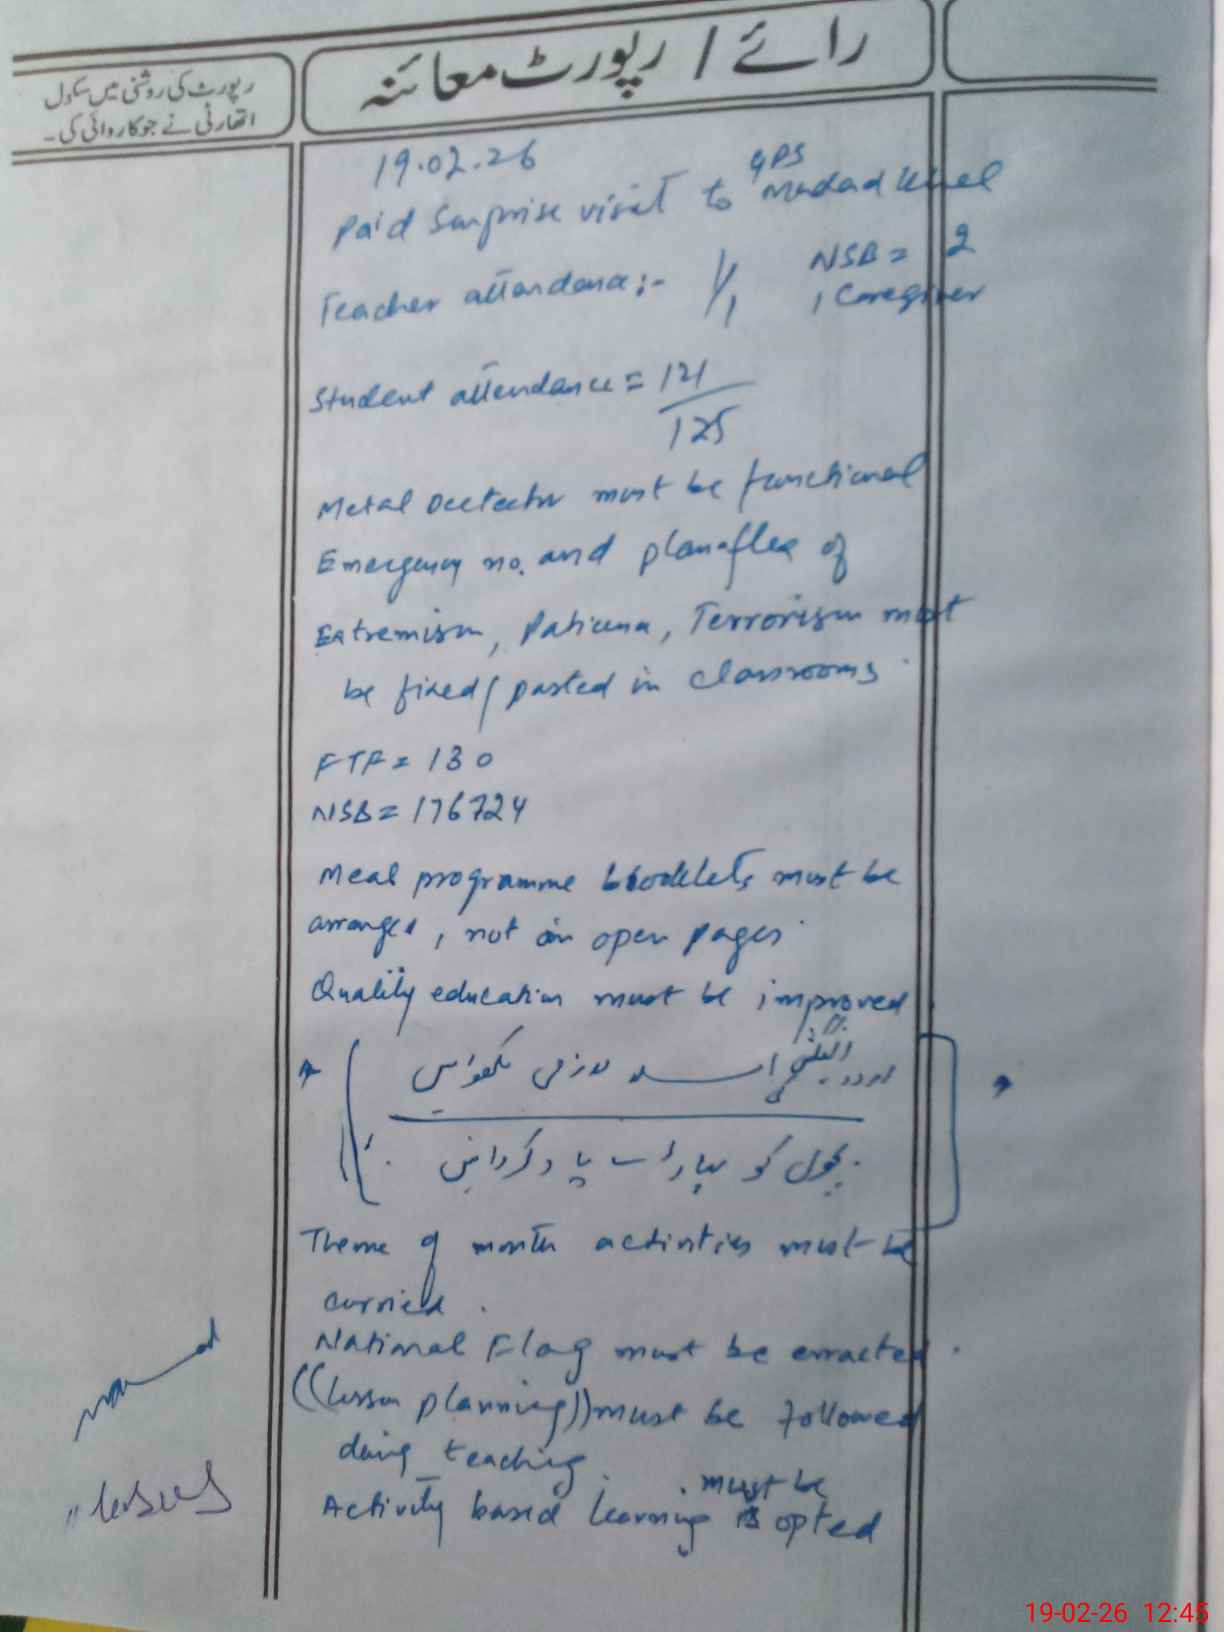 رائے / رپورٹ معائنہ
رپورٹ کی روشنی میں سکول
اتھارٹی نے جو کاروائی کی۔
19.02.26
Paid Surprise visit to GPS Madad Khel
Teacher attendance:- 1/1 NSB = 2
1 Caregiver
Student attendance = 121/125
Metal Detector must be functional
Emergency no. and planaflex of
Extremism, Terrorism must
be fixed/pasted in classrooms.
FTF = 130
NSB = 176724
Meal programme booklets must be
arranged, not in open pages.
Quality education must be improved.
اردو، انگلش املا لازمی لکھوائیں
بچوں کو پہاڑے یاد کروائیں.
Theme of month activities must be
carried.
National Flag must be erracted.
((lesson planning)) must be followed
during teaching.
Activity based learning must be opted
19-02-26 12:45